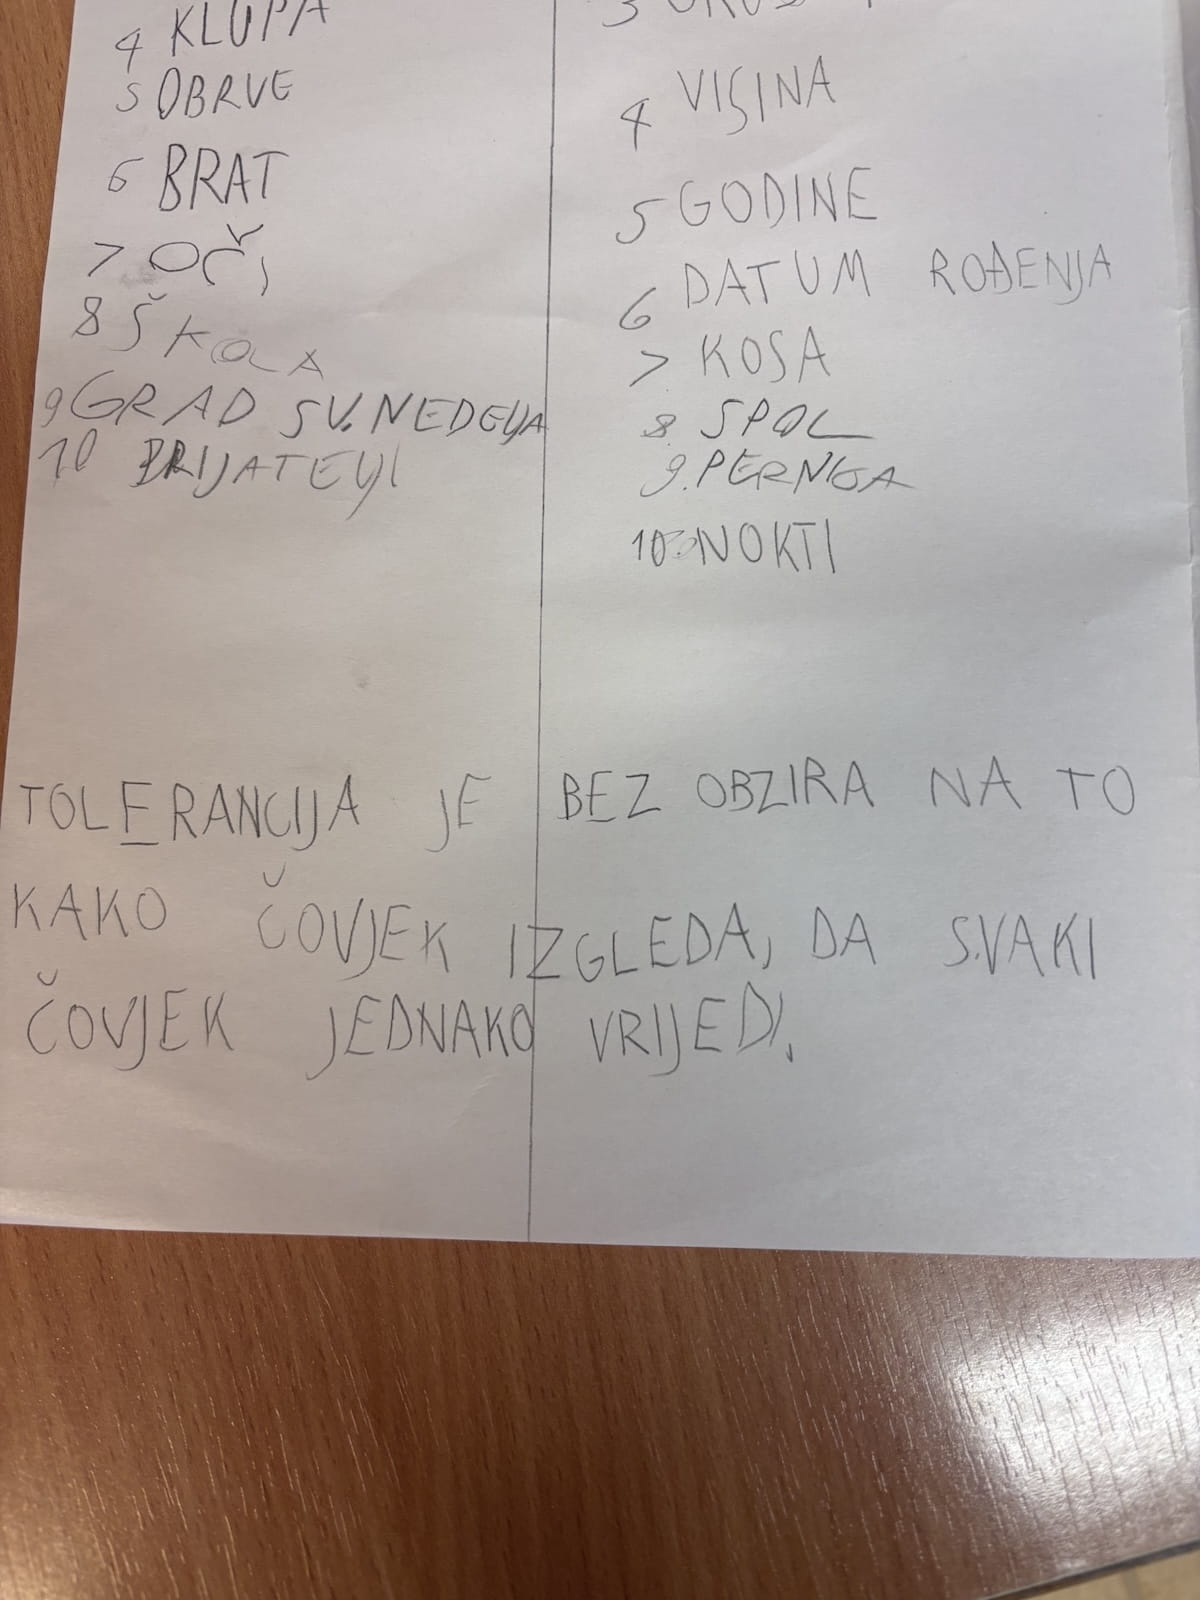 4 KLUPA
5 OBRVE
6 BRAT
7 OČI
8 ŠKOLA
9 GRAD SV. NEDELJA
10 PRIJATELJI
3
4 VISINA
5 GODINE
6 DATUM ROĐENJA
7 KOSA
8. SPOL
9. PERNICA
10. NOKTI
TOLERANCIJA JE BEZ OBZIRA NA TO
KAKO ČOVJEK IZGLEDA, DA SVAKI
ČOVJEK JEDNAKO VRIJEDI.